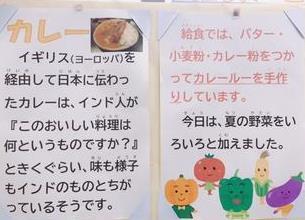 カレー
イギリス(ヨーロッパ)を
経由して日本に伝わっ
たカレーは、インド人が
『このおいしい料理は
何というものですか?』
ときくぐらい、味も様子
もインドのものとちが
っているそうです。
給食では、バター・
小麦粉・カレー粉をつか
ってカレールーを手作
りしています。
今日は、夏の野菜をい
ろいろと加えました。